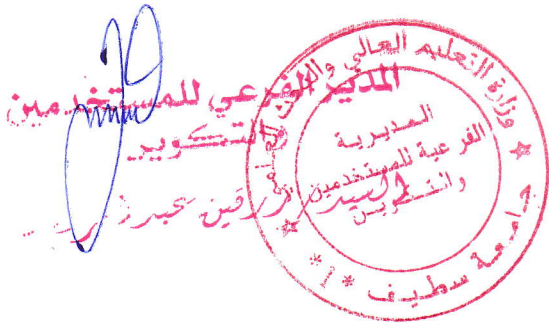 المدير الفرعي للمستخدمين
والتكوين
السيد
وزارة التعليم العالي والبحث العلمي
المديرية
الفرعية للمستخدمين
والتكوين
جامعة سطيف * 1 *